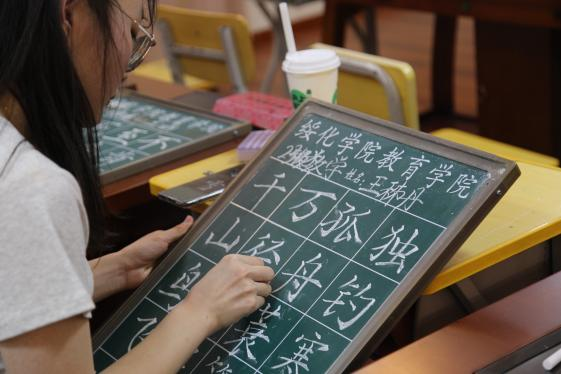 绥化学院教育学院
23级数学 姓名:王柳丹
千 万 孤 独
山 径 舟 钓
鸟 蓑 寒
飞